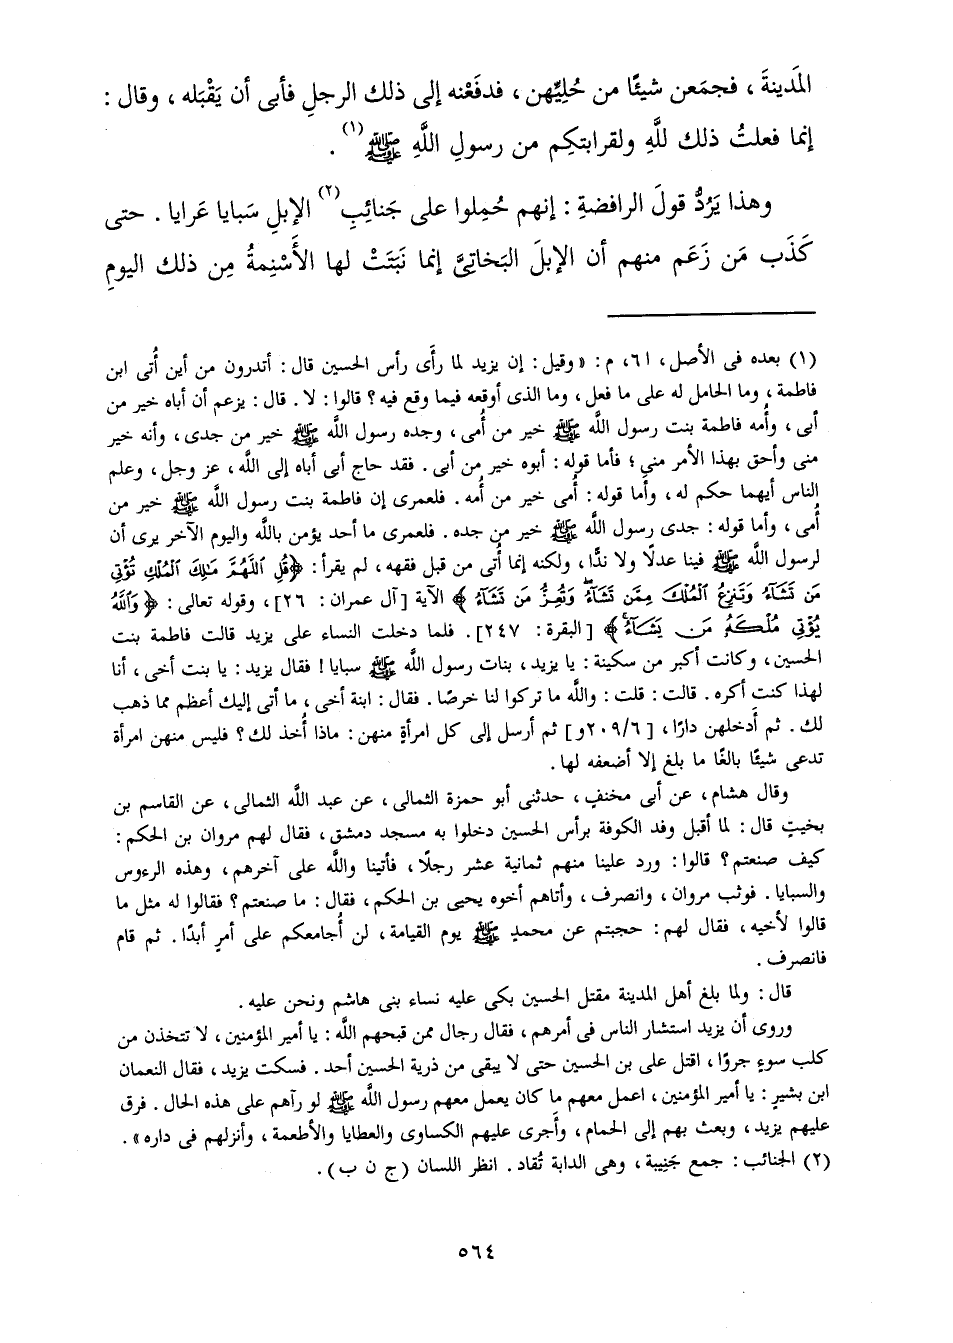 المَدينةَ ، فجمَعن شيئًا من حُلِيِّهن ، فدفَعْنه إلى ذلك الرجلِ فأبى أن يَقْبَله ، وقال :
إنما فعلتُ ذلك للَّهِ ولقرابتكِم من رسولِ اللَّهِ ﷺ (١) .
وهذا يَرُدُّ قولَ الرافضةِ : إنهم حُمِلوا على جَنائبِ (٢) الإبلِ سَبايا عَرايا . حتى
كَذَب مَن زَعَم منهم أن الإبلَ البَخاتِىَّ إنما نَبَتَتْ لها الأَسْنِمةُ مِن ذلك اليومِ
(١) بعده فى الأصل ، ٦١ ، م : « وقيل : إن يزيد لما رأَى رأس الحسين قال : أتدرون من أين أُتى ابن
فاطمة ، وما الحامل له على ما فعل ، وما الذى أوقعه فيما وقع فيه ؟ قالوا : لا . قال : يزعم أن أباه خير من
أبى ، وأُمه فاطمة بنت رسول اللَّه ﷺ خير من أُمى ، وجده رسول اللَّه ﷺ خير من جدى ، وأنه خير
منى وأحق بهذا الأمر منى ؛ فأما قوله : أبوه خير من أبى . فقد حاج أبى أباه إلى اللَّه ، عز وجل ، وعلم
الناس أيهما حكم له ، وأما قوله : أُمى خير من أُمه . فلعمرى إن فاطمة بنت رسول اللَّه ﷺ خير من
أُمى ، وأما قوله : جدى رسول اللَّه ﷺ خير من جده . فلعمرى ما أحد يؤمن باللَّه واليوم الآخر يرى أن
لرسول اللَّه ﷺ فينا عدلًا ولا ندًّا ، ولكنه إنما أُتى من قبل فقهه ، لم يقرأ : ﴿قُلِ ٱللَّهُمَّ مَٰلِكَ ٱلْمُلْكِ تُؤْتِى
مَن تَشَآءُ وَتَنزِعُ ٱلْمُلْكَ مِمَّن تَشَآءُ وَتُعِزُّ مَن تَشَآءُ﴾ الآية [آل عمران : ٢٦] ، وقوله تعالى : ﴿وَٱللَّهُ
يُؤْتِى مُلْكَهُۥ مَن يَشَآءُ﴾ [البقرة : ٢٤٧] . فلما دخلت النساء على يزيد قالت فاطمة بنت
الحسين ، وكانت أكبر من سكينة : يا يزيد ، بنات رسول اللَّه ﷺ سبايا ! فقال يزيد : يا بنت أخى ، أنا
لهذا كنت أكره . قالت : قلت : واللَّه ما تركوا لنا خرصًا . فقال : ابنة أخى ، ما أتى إليك أعظم مما ذهب
لك . ثم أَدخلهن دارًا ، [٢٠٩/٦و] ثم أرسل إلى كل امرأةٍ منهن : ماذا أُخذ لك ؟ فليس منهن امرأة
تدعى شيئًا بالغًا ما بلغ إلا أضعفه لها .
وقال هشام ، عن أبى مخنفٍ ، حدثنى أبو حمزة الثمالى ، عن عبد اللَّه الثمالى ، عن القاسم بن
بخيتٍ قال : لما أقبل وفد الكوفة برأس الحسين دخلوا به مسجد دمشق ، فقال لهم مروان بن الحكم :
كيف صنعتم ؟ قالوا : ورد علينا منهم ثمانية عشر رجلًا ، فأتينا واللَّه على آخرهم ، وهذه الرءوس
والسبايا . فوثب مروان ، وانصرف ، وأتاهم أخوه يحيى بن الحكم ، فقال : ما صنعتم ؟ فقالوا له مثل ما
قالوا لأخيه ، فقال لهم : حجبتم عن محمدٍ ﷺ يوم القيامة ، لن أُجامعكم على أمرٍ أبدًا . ثم قام
فانصرف .
قال : ولما بلغ أهل المدينة مقتل الحسين بكى عليه نساء بنى هاشم ونحن عليه .
وروى أن يزيد استشار الناس فى أمرهم ، فقال رجال ممن قبحهم اللَّه : يا أمير المؤمنين ، لا تتخذن من
كلب سوءٍ جروًا ، اقتل على بن الحسين حتى لا يبقى من ذرية الحسين أحد . فسكت يزيد ، فقال النعمان
ابن بشيرٍ : يا أمير المؤمنين ، اعمل معهم ما كان يعمل معهم رسول اللَّه ﷺ لو رآهم على هذه الحال . فرق
عليهم يزيد ، وبعث بهم إلى الحمام ، وأَجرى عليهم الكساوى والعطايا والأطعمة ، وأنزلهم فى داره » .
(٢) الجنائب : جمع جَنِيبة ، وهى الدابة تُقاد . انظر اللسان (ج ن ب) .
٥٦٤